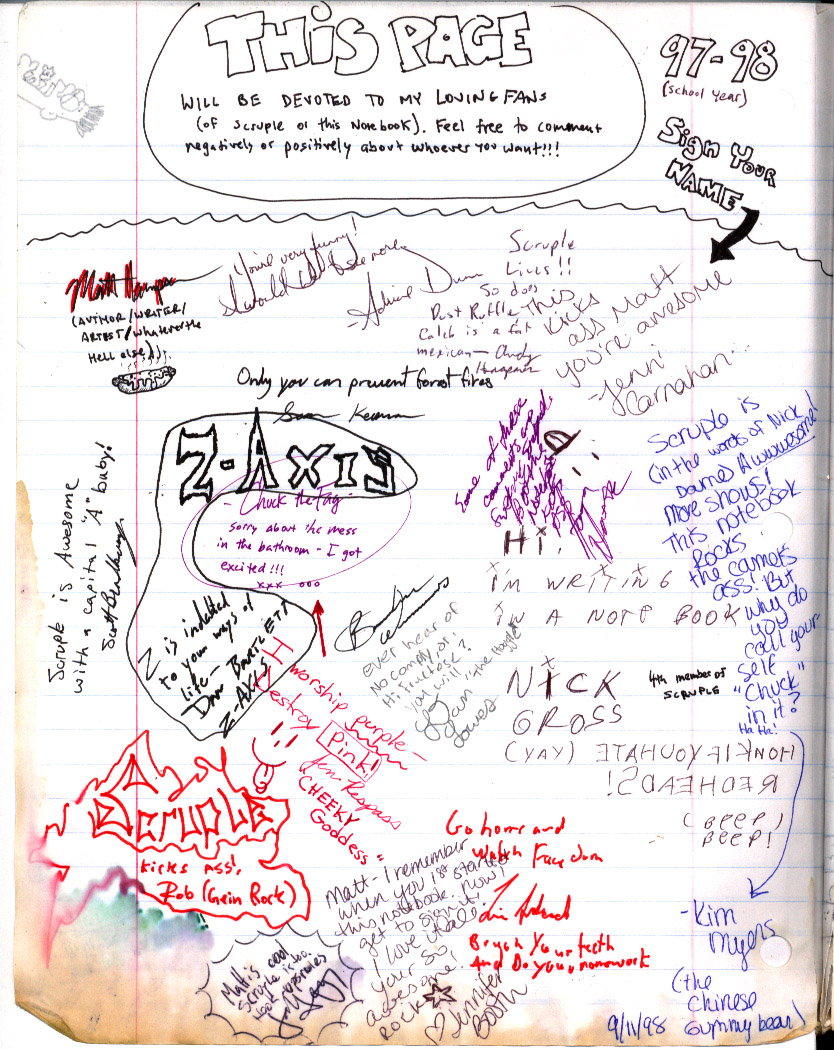 THIS PAGE
WILL BE DEVOTED TO MY LOVING FANS
(of Scruple or this Notebook). Feel free to comment
negatively or positively about whoever you want!!!
97-98
(school year)
Sign Your
NAME
Matt
(AUTHOR/WRITER/
ARTIST/whatever the
Hell else)
You're very funny!
I would like to see more
- Adriane Dunn
Scruple
Lives!!
So does
Dust Ruffle
Caleb is a fat
mexican - Andy
This
kicks
ass Matt
you're awesome
-Jenni
Carnahan...
Only you can prevent forest fires
Sean
Scruple is Awesome
with a capital "A" baby!
Scott
Z-AXIS
- Chuck the Fag
sorry about the mess
in the bathroom - I got
excited!!!
xxx ooo
Z is indebted
to your ways of
life -
Dan Bartlett
Z-AXIS
Some of these
comments are
Hi,
I'M WRITING
IN A NOTE BOOK
NICK
GROSS
4th member of
SCRUPLE
HONK IF YOU HATE (YAY)
REDHEADS!
(BEEP)
BEEP!
Scruple is
(in the words of Nick
Daumes) Awwwesome!
More shows!
This notebook
Rocks
the camel's
ass! But
why do
you
call your-
self
"Chuck"
in it?
Ha Ha!
-Kim
Myers
(the
Chinese
Gummy bear)
9/11/98
ever hear of
No commy or
Hi Fructose?
you will
Ryan
"The Hoagie"
I worship purple-
Destroy
Pink!
Jen Respass
"CHEEKY
Goddess"
Scruple
kicks ass!
Rob (Gein Rock)
Go home and
Watch Face Jam
Brush Your teeth
And Do your homework
Matt- I remember
when you 1st started
this notebook. Now I
get to sign it!
I love y'all.
your so
awesome!
ROCK
♡ Jennifer
Booth
Matt is cool
Scruple is too.